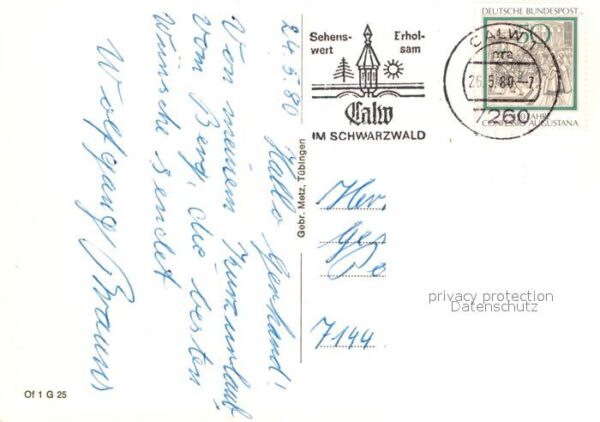 24.5.80 Hallo Gerhard!
Von meinem Kurzurlaub
vom Berg, die besten
Wünsche sendet
Wolfgang Brauns
Of 1 G 25
Gebr. Metz, Tübingen
Sehens-
wert
Erhol-
sam
Calw
IM SCHWARZWALD
CALW 1
26.5.80-7
7260
DEUTSCHE BUNDESPOST
50
JAHRE
CONFESSIO AUGUSTANA
Her
7144
privacy protection
Datenschutz